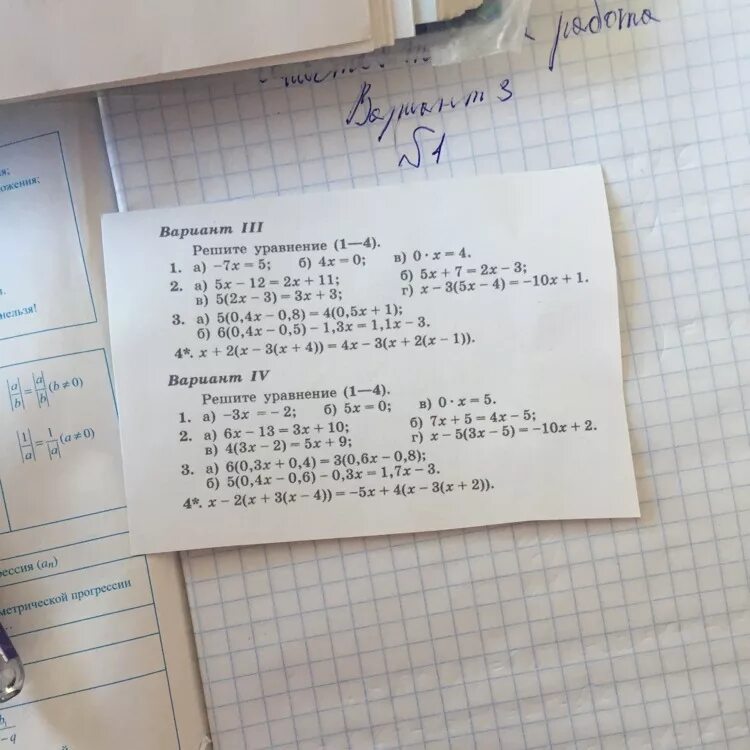 работа
Вариант 3
№1
Вариант III
Решите уравнение (1—4).
1. а) −7x = 5; б) 4x = 0; в) 0 · x = 4.
2. а) 5x − 12 = 2x + 11; б) 5x + 7 = 2x − 3;
в) 5(2x − 3) = 3x + 3; г) x − 3(5x − 4) = −10x + 1.
3. а) 5(0,4x − 0,8) = 4(0,5x + 1);
б) 6(0,4x − 0,5) − 1,3x = 1,1x − 3.
4*. x + 2(x − 3(x + 4)) = 4x − 3(x + 2(x − 1)).
Вариант IV
Решите уравнение (1—4).
1. а) −3x = − 2; б) 5x = 0; в) 0 · x = 5.
2. а) 6x − 13 = 3x + 10; б) 7x + 5 = 4x − 5;
в) 4(3x − 2) = 5x + 9; г) x − 5(3x − 5) = −10x + 2.
3. а) 6(0,3x + 0,4) = 3(0,6x − 0,8);
б) 5(0,4x − 0,6) − 0,3x = 1,7x − 3.
4*. x − 2(x + 3(x − 4)) = −5x + 4(x − 3(x + 2)).
|a/b| = |a|/|b| (b ≠ 0)
|1/a| = 1/|a| (a ≠ 0)
(aₙ)
прогрессии